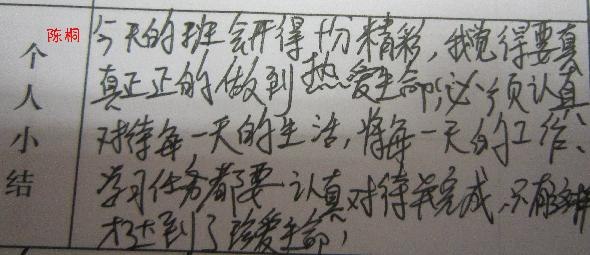 陈桐
个人小结
今天的班会开得十分精彩，我觉得要真
真正正的做到热爱生命，必须认真
对待每一天的生活，将每一天的工作、
学习任务都要认真对待并完成，只有这样
才达到了珍爱生命，